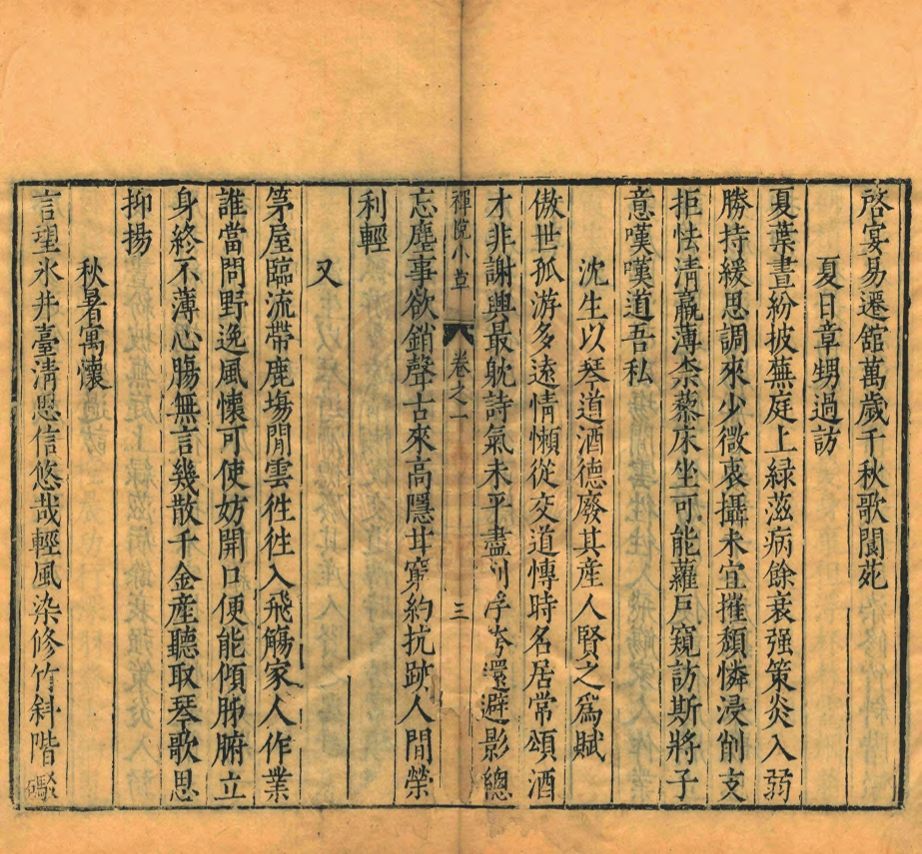 啓宴易遷舘萬歲千秋歌閬苑
夏日章甥過訪
夏葉晝紛披蕪庭上綠滋病餘衰强策炎入弱
勝持緩思調來少微衷攝未宜摧頹憐浸削支
拒怯清羸薄柰藜床坐可能蘿戶窺訪斯將子
意嘆嘆道吾私
沈生以琴道酒德廢其產人賢之爲賦
傲世孤游多遠情懶從交道慱時名居常頌酒
才非謝與最躭詩氣未平盡浮夸還避影總
禪院小草
卷之一
三
忘塵事欲銷聲古來高隱甘窮約抗跡人間榮
利輕
又
茅屋臨流帶鹿塲閒雲徃徃入飛觴家人作業
誰當問野逸風懷可使妨開口便能傾肺腑立
身終不薄心腸無言幾散千金產聽取琴歌思
抑揚
秋暑寓懷
言望氷井臺淸思信悠哉輕風染修竹斜階